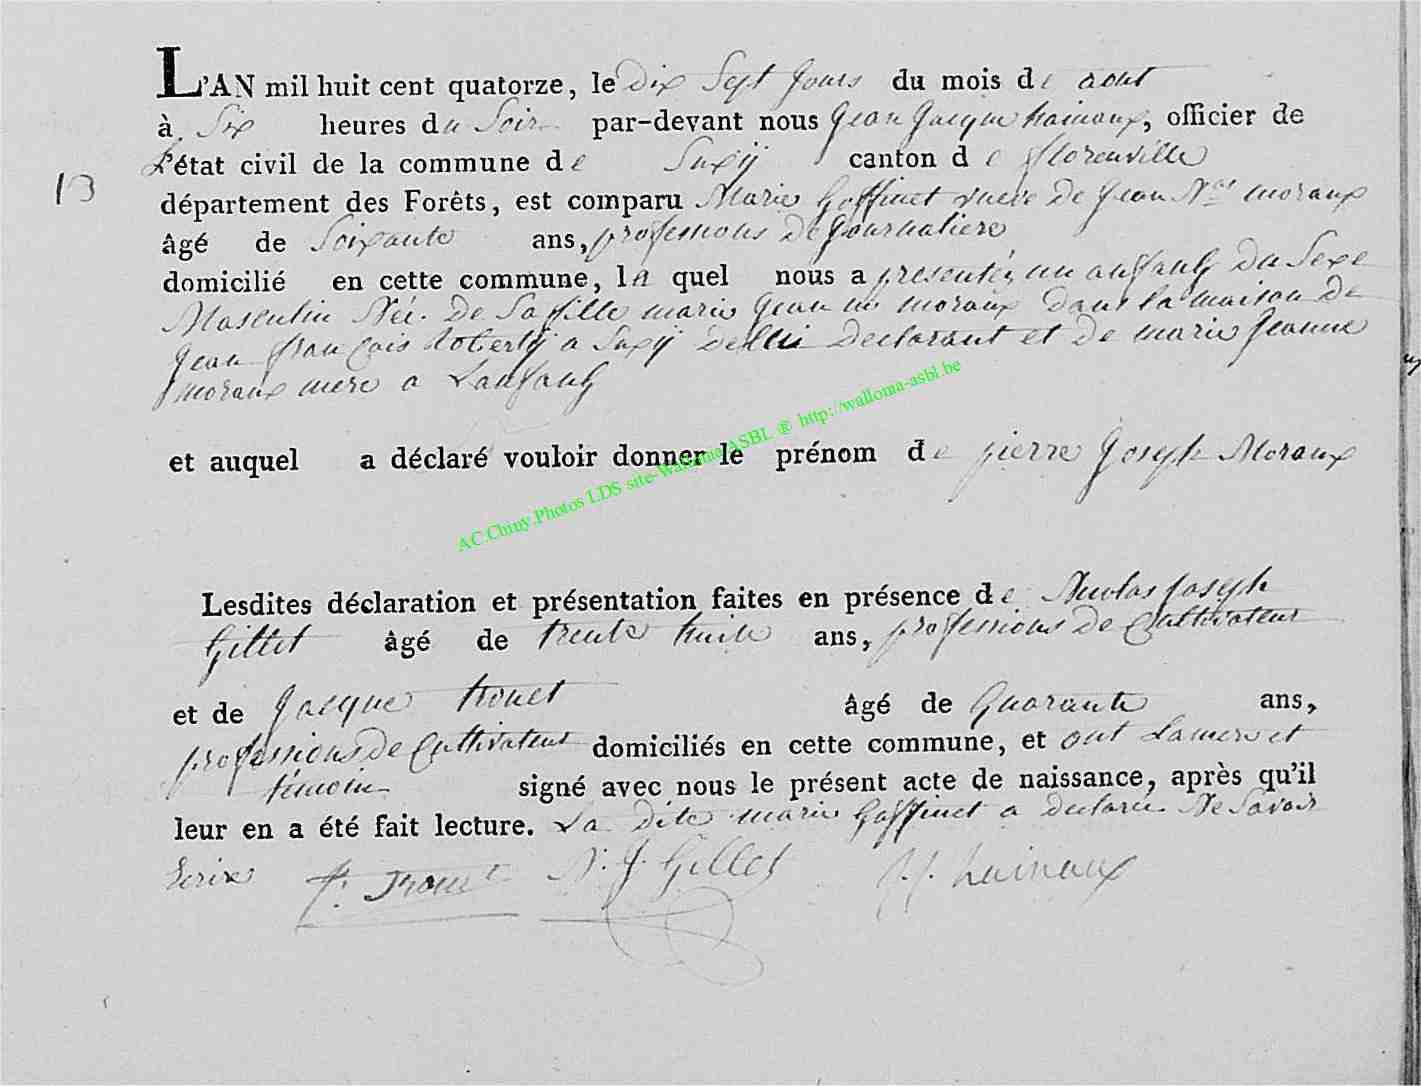 L'AN mil huit cent quatorze, le dix Sept Jours du mois de aout
à Six heures du Soir par-devant nous Jean Jacque hainaux, officier de
L'état civil de la commune de Suxÿ canton de florenville
13
département des Forêts, est comparu Marie Goffinet veuve de Jean N.as moraux
âgé de Soixante ans, professions de Journaliere
domicilié en cette commune, la quel nous a presentée, un anfant du Sexe
Masculin Néé. De Sa fille marie Jean moraux Dans la maison De
Jean françois a Suxÿ declarant et de marie Jeanne
moraux mere a Lanfant
et auquel a déclaré vouloir donner le prénom de pierre Joseph Moraux
AC.Chiny.Photos LDS site-Walloma ASBL ® http://walloma-asbl.be
Lesdites déclaration et présentation faites en présence de Nicolas Joseph
Gillet âgé de trente huite ans, professions de Cultivateur
et de Jacque âgé de Quarante ans,
professions de Cultivateur domiciliés en cette commune, et ont
temoin signé avec nous le présent acte de naissance, après qu'il
leur en a été fait lecture. La dite marie Goffinet a declarée Ne Savoir
Ecrire N. J. Gillet J. J. hainaux